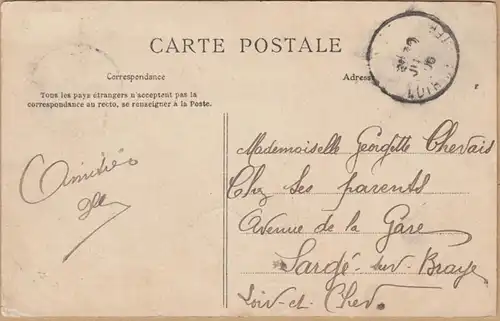 CARTE POSTALE
Correspondance
Adresse
Tous les pays étrangers n'acceptent pas la
correspondance au recto, se renseigner à la Poste.
Amitiés
Mademoiselle Georgette Chevais
Chez ses parents
Avenue de la Gare
Sargé-sur-Braye
Loir-et-Cher.